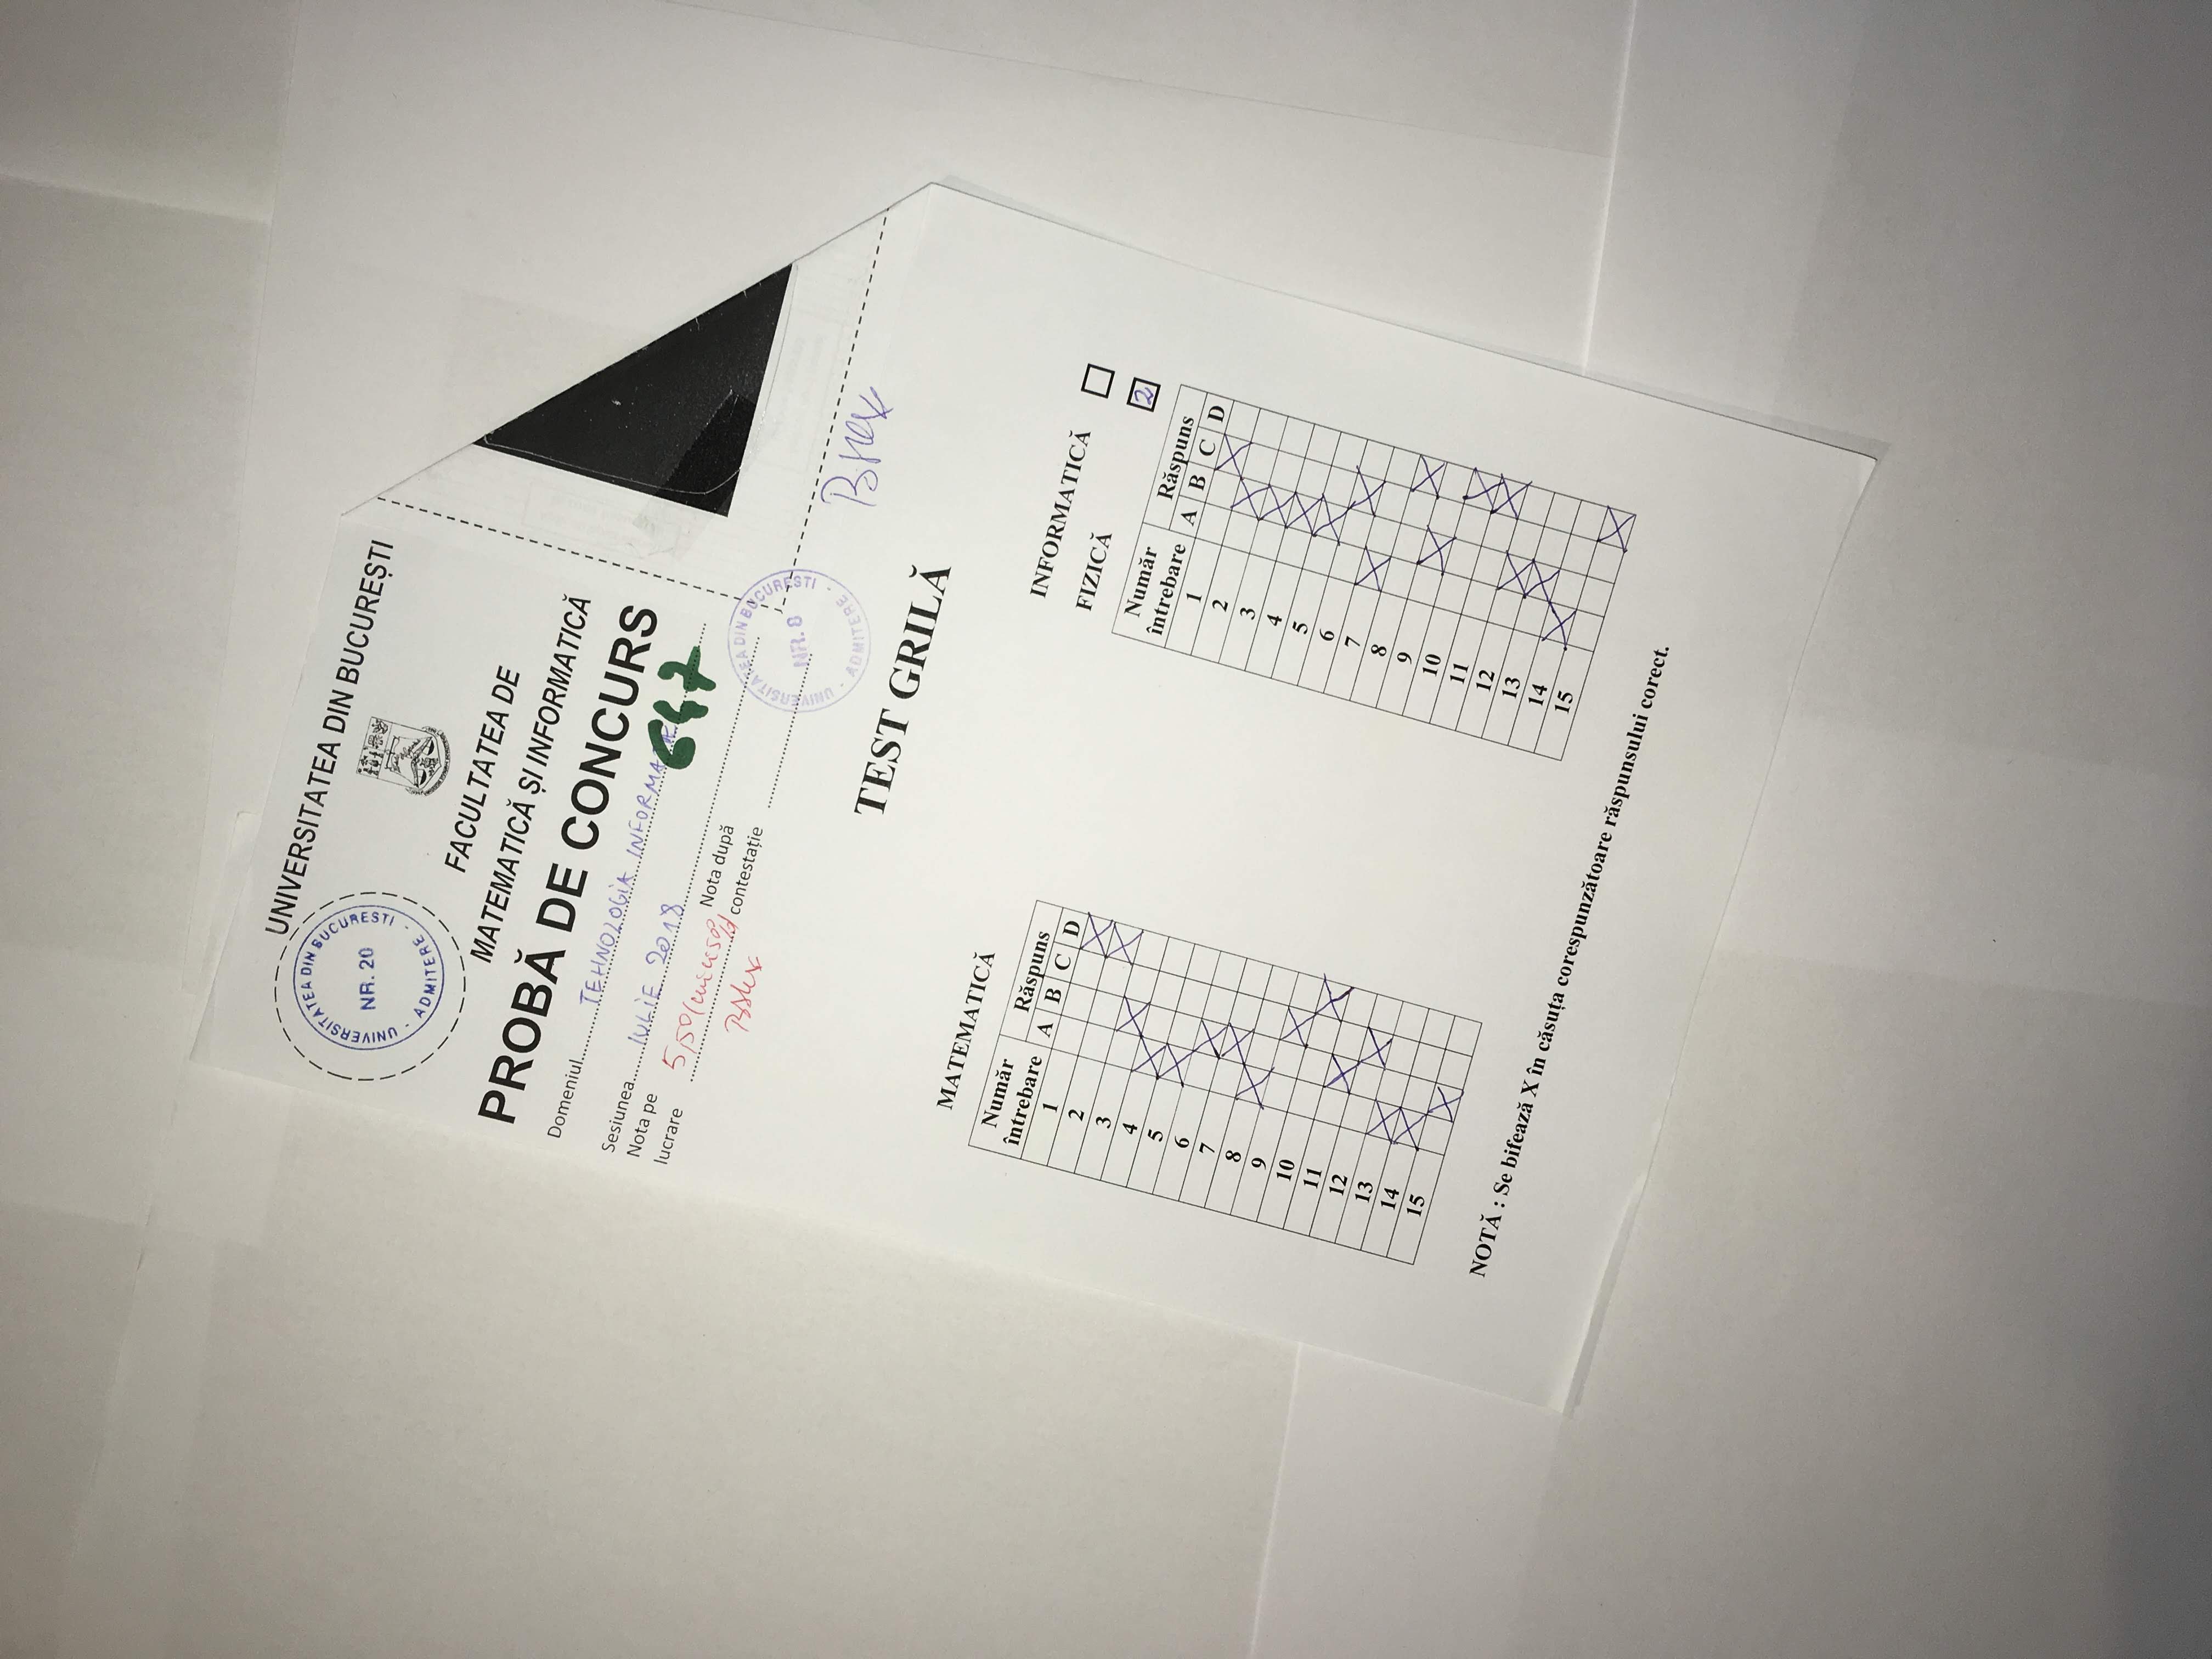 UNIVERSITATEA DIN BUCUREȘTI
UNIVERSITATEA DIN BUCUREȘTI - ADMITERE -
NR. 20
FACULTATEA DE
MATEMATICĂ ȘI INFORMATICĂ
PROBĂ DE CONCURS
Domeniul TEHNOLOGIA
647
Sesiunea IULIE 2018
Nota pe lucrare 5,50
Nota după contestație
UNIVERSITATEA DIN BUCUREȘTI - ADMITERE -
NR. 8
TEST GRILĂ
MATEMATICĂ
Număr întrebare Răspuns
A B C D
1
2
3
4
5
6
7
8
9
10
11
12
13
14
15
INFORMATICĂ
FIZICĂ 2
Număr întrebare Răspuns
A B C D
1
2
3
4
5
6
7
8
9
10
11
12
13
14
15
NOTĂ : Se bifează X în căsuța corespunzătoare răspunsului corect.